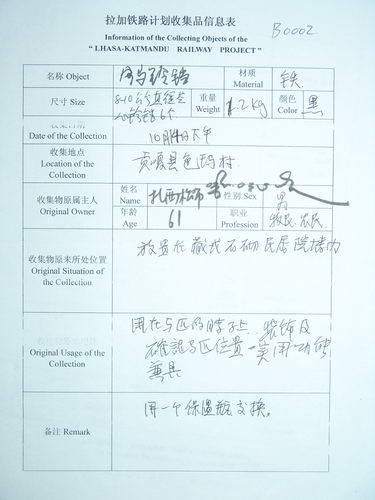 拉加铁路计划收集品信息表
B0002
Information of the Collecting Objects of the
“ LHASA-KATMANDU RAILWAY PROJECT ”
名称 Object
材质 Material 铁
尺寸 Size
重量 Weight 1.2 kg 颜色 Color 黑
Date of the Collection 10月14日下午
收集地点
Location of the Collection
收集物原属主人
Original Owner
姓名 Name 扎西 性别 Sex 男
年龄 Age 61 职业 Profession 牧民 农民
收集物原来所处位置
Original Situation of the Collection
放置在藏式石砌民居院墙内
Original Usage of the Collection
用在马匹的脖子上 装饰及
确認马匹位置 美用功能
兼具
备注 Remark
用一个保温瓶交换。